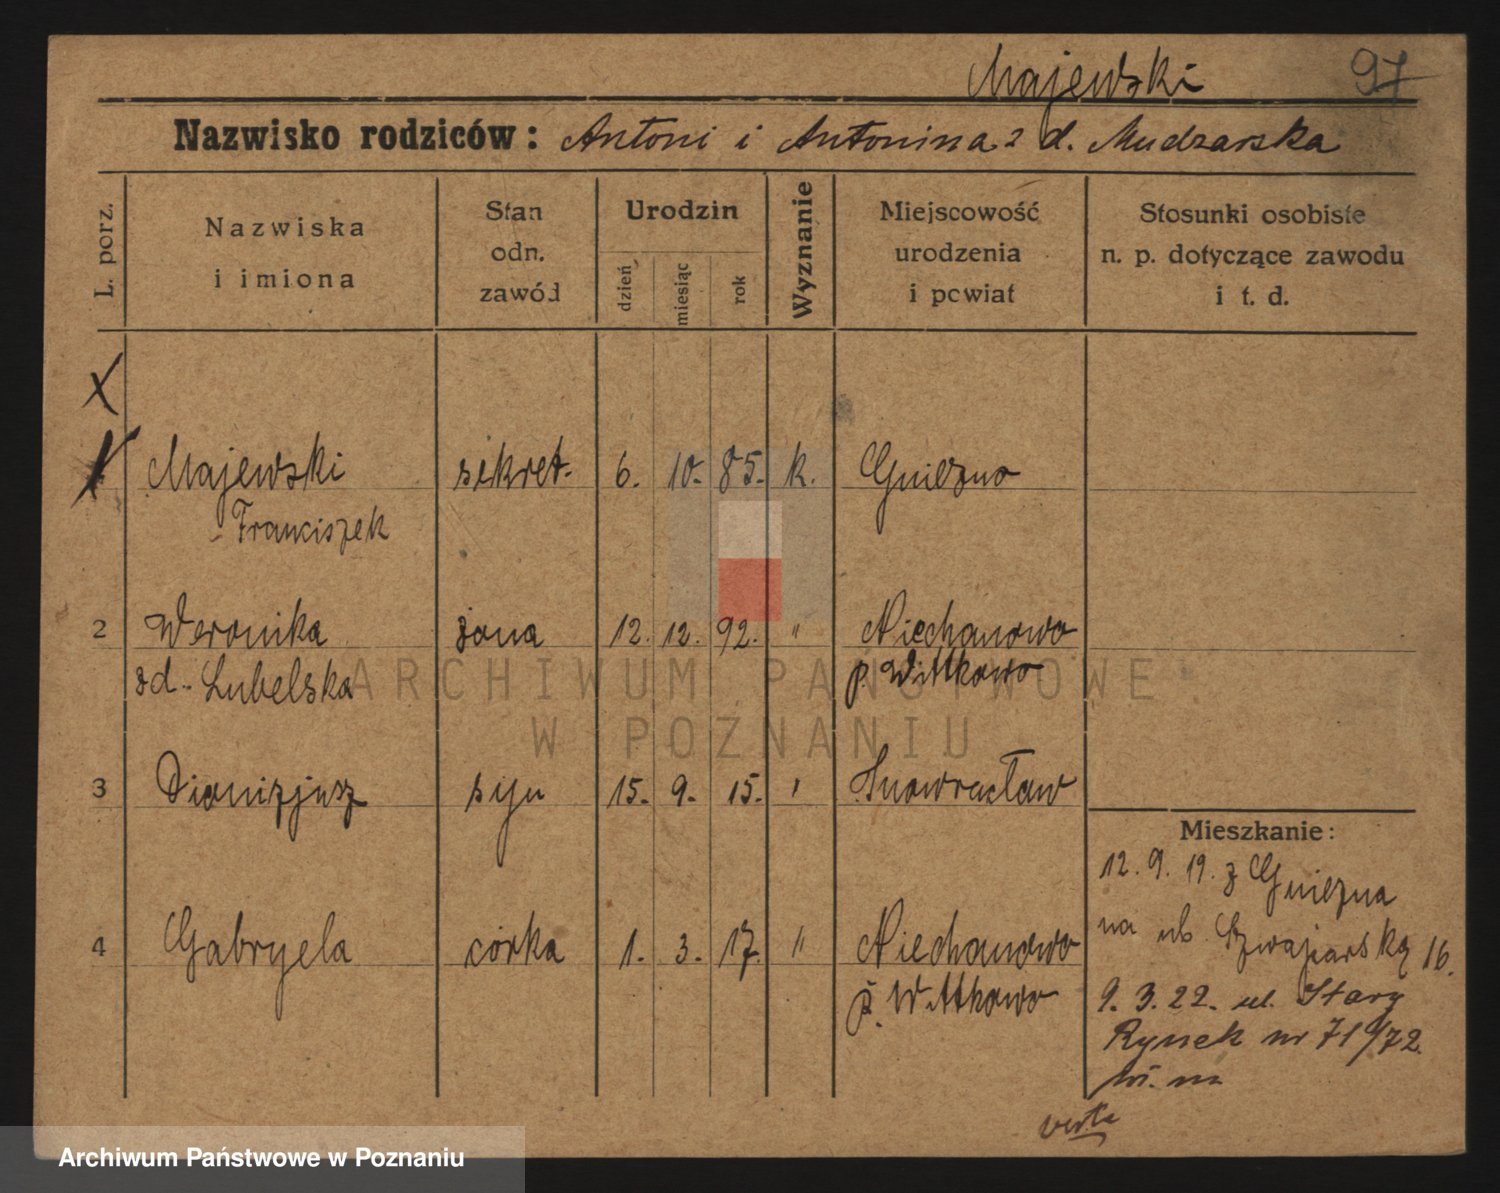 Majewski 97
Nazwisko rodziców: Antoni i Antonina z d. Mudzarska
L. porz.
Nazwiska
i imiona
Stan
odn.
zawód
Urodzin
dzień
miesiąc
rok
Wyznanie
Miejscowość
urodzenia
i powiat
Stosunki osobiste
n. p. dotyczące zawodu
i t. d.
X
Majewski sekret. 6. 10. 85. k. Gniezno
Franciszek
2 Weronika żona 12. 12. 92. " Niechanowo
zd. Lubelska p. Wittkowo
ARCHIWUM PAŃSTWOWE
W POZNANIU
3 Dionizjusz syn 15. 9. 15. " Inowrocław
4 Gabryela córka 1. 3. 17. " Niechanowo
p. Wittkowo
Mieszkanie:
12. 9. 19. z Gniezna
na ul. Szwajcarską 16.
9. 3. 22. ul. Stary
Rynek nr 71/72.
verte
Archiwum Państwowe w Poznaniu